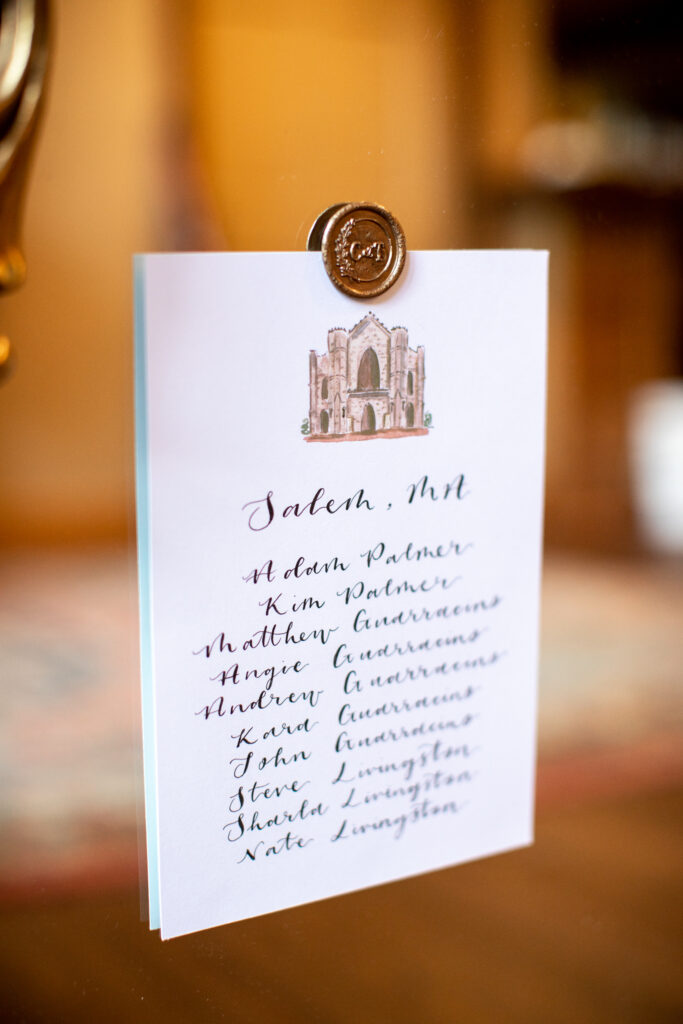 C&T
Salem, MA
Adam Palmer
Kim Palmer
Matthew Guarracins
Angie Guarracins
Andrew Guarracins
Kara Guarracins
John Guarracins
Steve Livingston
Sharla Livingston
Nate Livingston